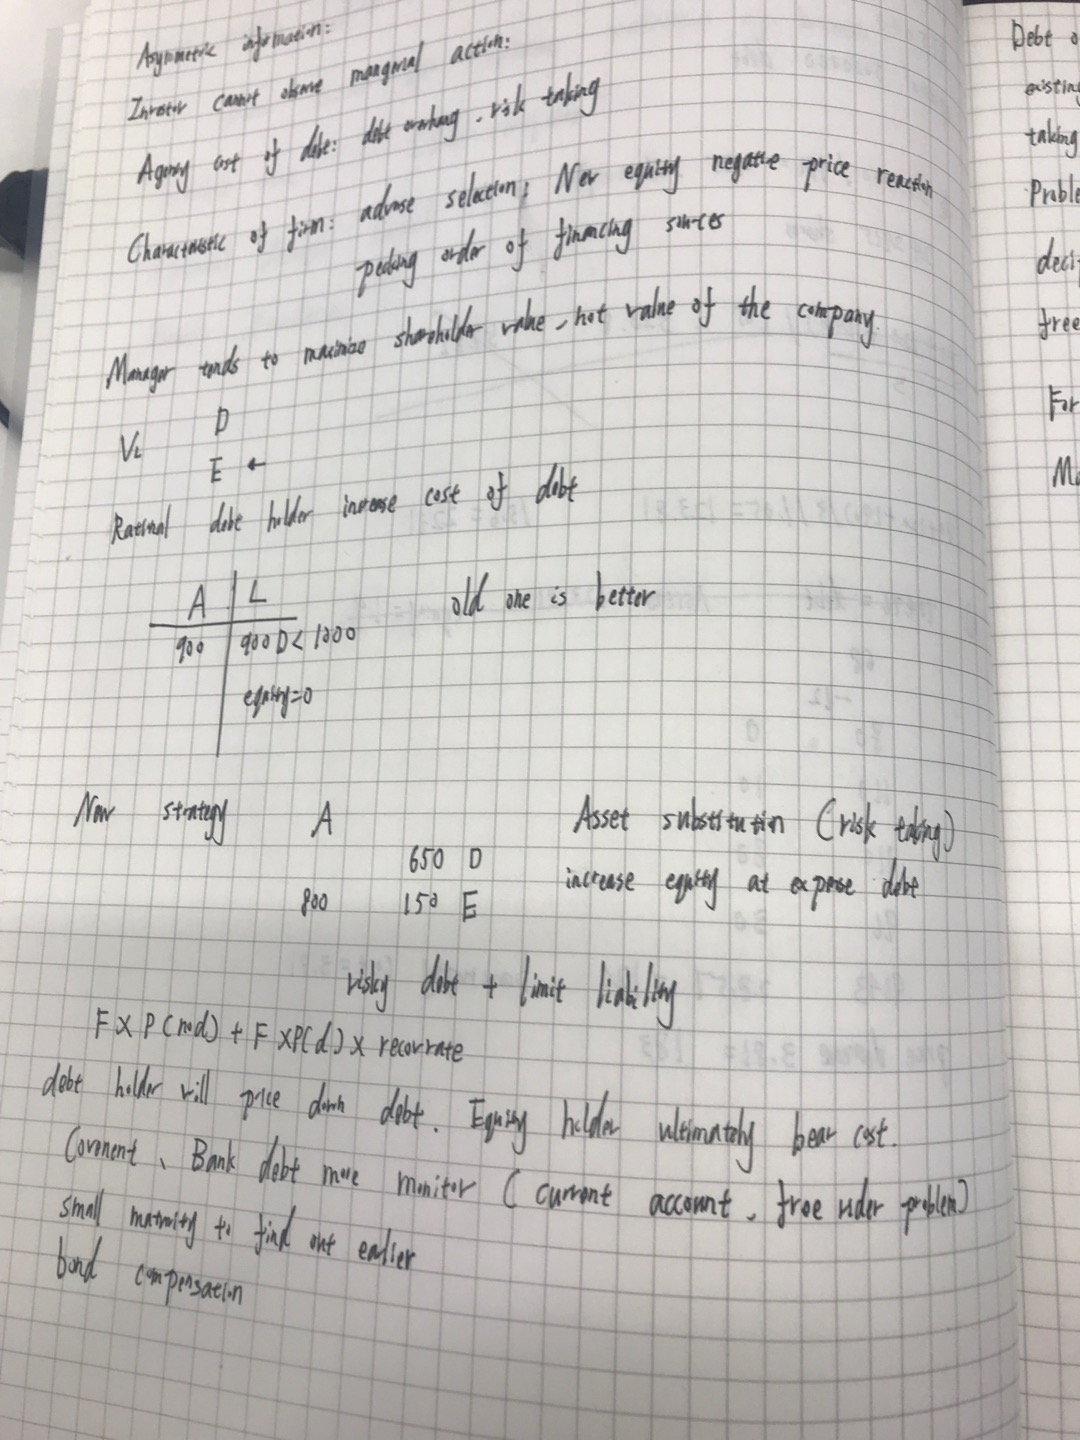 Asymmetric information:
Investor cannot observe manginal action:
Agency cost of debt: debt overhang, risk taking
Characteristic of firm: adverse selection: New equity negative price reaction
pecking order of financing sources
Manager tends to maximize shareholder value, not value of the company.
VL D
E ←
Rational debt holder increase cost of debt
A L
old one is better
900 900 D < 1000
equity=0
New strategy A
Asset substitution (risk taking)
650 D
increase equity at expense debt
800 150 E
risky debt + limit liability
F X P(nod) + F X P(d) X recovrate
debt holder will price down debt. Equity holder ultimately bear cost.
Covenent, Bank debt more monitor (current account, free rider problem)
small maturity to find out earlier
bond compensation
Debt o
existing
taking
Proble
deci
free
For
Ma